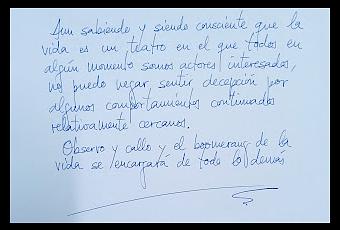 Aun sabiendo y siendo consciente que la
vida es un teatro en el que todos en
algún momento somos actores interesados,
no puedo negar sentir decepción por
algunos comportamientos continuados
relativamente cercanos.
Observo y callo y el boomerang de la
vida se encargará de todo lo demás